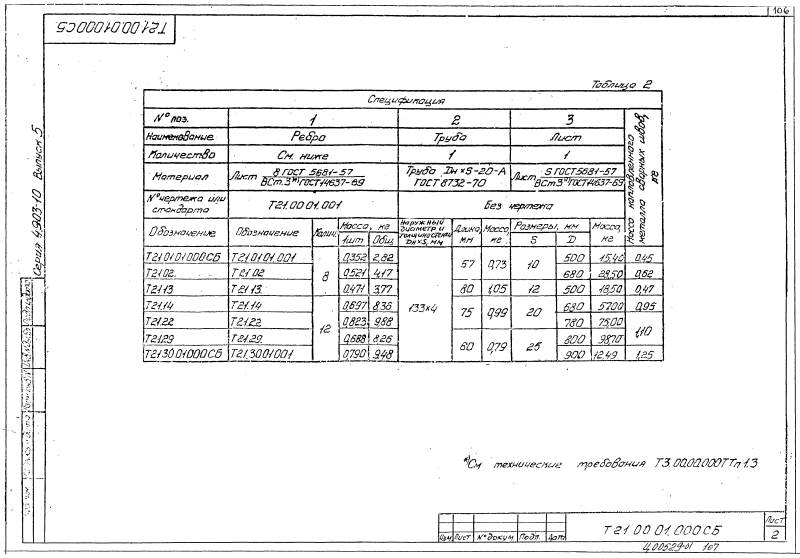 106
Т21.00.01.000СБ
Серия 4.903-10 Выпуск 5
Таблица 2
Спецификация
№ поз. 1 2 3
Наименование Ребро Труба Лист
Количество См. ниже 1 1
Материал Лист 8 ГОСТ 5681-57 / ВСт.3*) ГОСТ 14637-69 Труба Дн×S-20-А ГОСТ 8732-70 Лист S ГОСТ 5681-57 / ВСт3*) ГОСТ 14637-69
№ чертежа или стандарта Т21.00.01.001 Без чертежа
Масса наплавленного металла сварных швов, кг
Обозначение Обозначение Колич. Масса, кг 1шт Общ. Наружный диаметр и толщина стенки Dн×S, мм Длина, мм Масса, кг Размеры, мм S D Масса, кг
Т21.01.01.000СБ Т21.01.01.001 8 0,352 2,82 133×4 57 0,73 10 500 15,40 0,45
Т21.02. Т21.02 0,521 4,17 680 28,50 0,62
Т21.13 Т21.13. 0,471 3,77 80 1,05 12 500 18,50 0,47
Т21.14 Т21.14 12 0,697 8,36 75 0,99 20 680 57,00 0,95
Т21.22 Т21.22 0,823 9,88 780 75,00 1,10
Т21.29 Т21.29. 0,688 8,26 60 0,79 25 800 98,70
Т21.30.01.000СБ Т21.30.01.001 0,790 9,48 900 12,49 1,25
*) См технические требования Т3.00.00.000ТТ п.1.3
Изм Лист № докум Подп. Дата
Т21.00.01.000СБ
Лист
2
Ц.00529-01 107